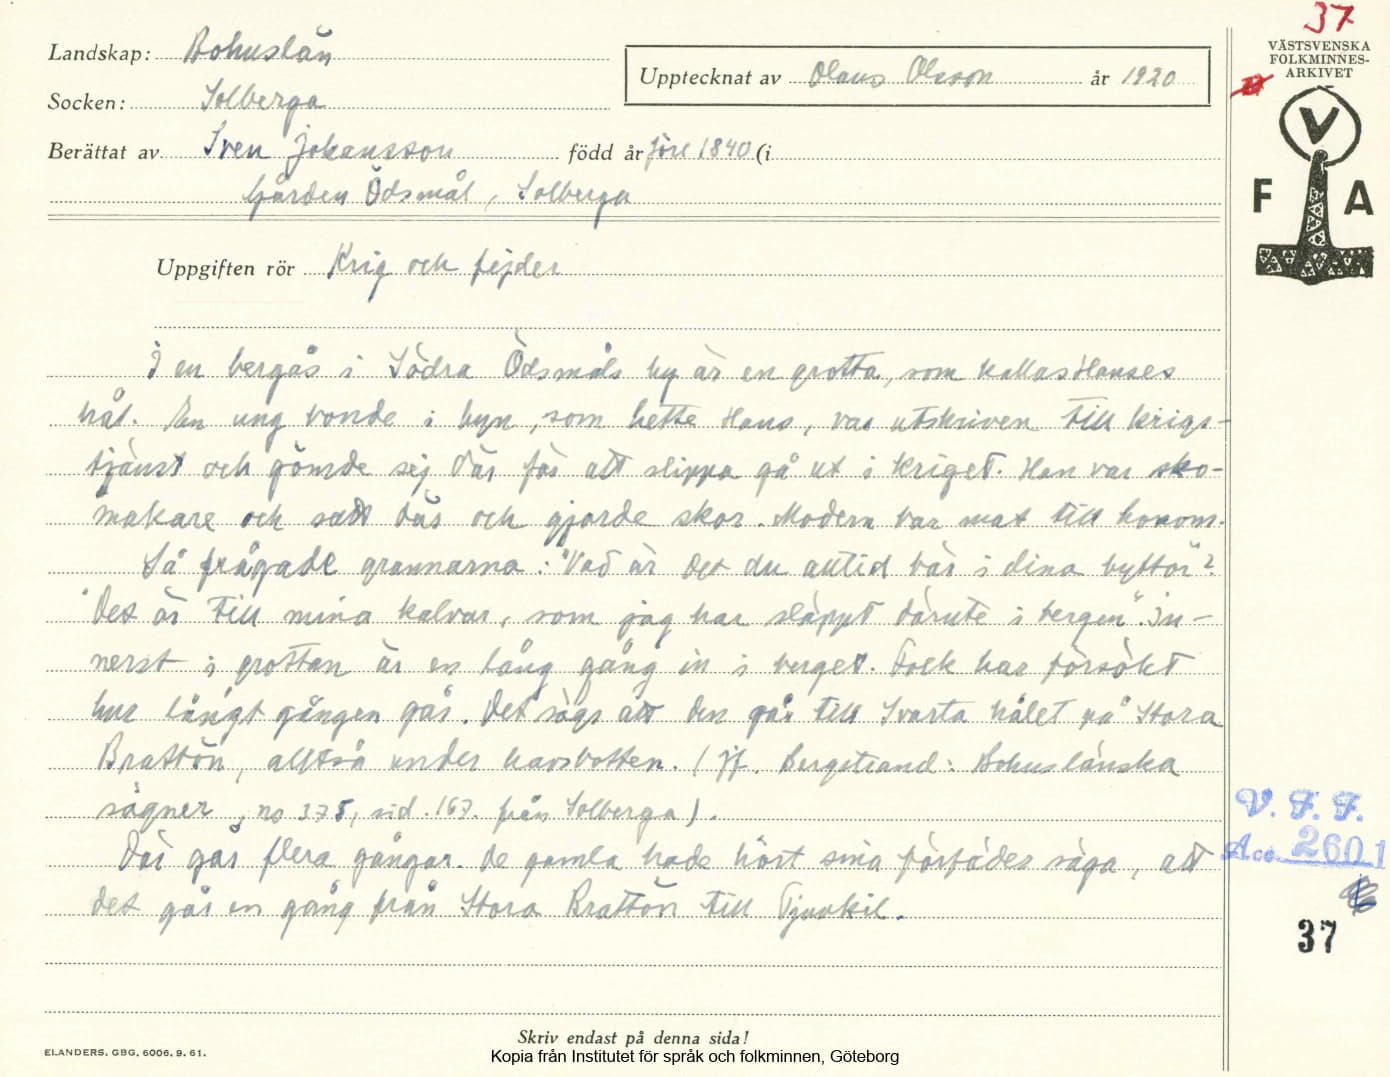 37
VÄSTSVENSKA
FOLKMINNES-
ARKIVET
V
F A
Landskap: Bohuslän
Upptecknat av Olaus Olsson år 1920
Socken: Solberga
Berättat av Sven Johansson född år före 1840 (i
Gården Ödsmål, Solberga
Uppgiften rör Krig och fejder
I en bergås i Södra Ödsmåls by är en grotta, som kallas Hanses
hål. En ung bonde i byn, som hette Hans, var utskriven till krigs-
tjänst och gömde sej där för att slippa gå ut i kriget. Han var sko-
makare och satt där och gjorde skor. Modern bar mat till honom.
Så frågade grannarna: "Vad är det du alltid bär i dina byttor"?
"Det är till mina kalvar, som jag har släppt därute i bergen". In-
nerst i grottan är en lång gång in i berget. Folk har försökt
hur långt gången går. Det sägs att den går till Svarta hålet på Stora
Brattön, alltså under havsbotten. (Jf. Bergstrand: Bohuslänska
sägner, no 375, sid. 167. från Solberga).
Där går flera gångar. De gamla hade hört sina förfäder säga, att
det går en gång från Stora Brattön till Tjuvkil.
V. F. F.
Acc. 2601
37
Skriv endast på denna sida!
ELANDERS, GBG, 6006. 9. 61.
Kopia från Institutet för språk och folkminnen, Göteborg